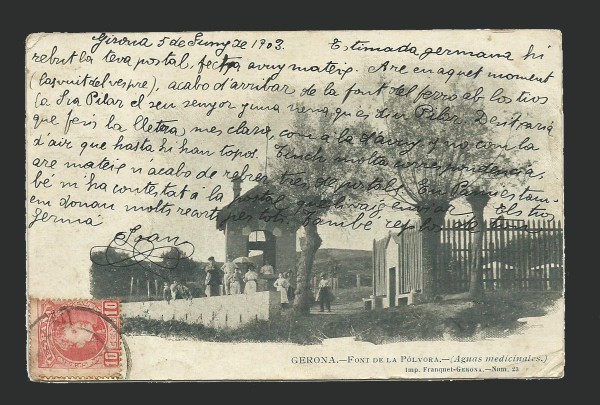 Girona 5 de Juny de 1903. Estimada germana hi
rebut la teva postal, fecha avuy mateix. Are en aquet moment
(las vuit del vespre), acabo d'arribar de la font del ferro ab los tios
la Sra Pilar el seu senyor y una nena que es diu Pilar. Desitjaria
que fesis la lletra mes clara, com a la d'avuy y no com la
d'air que hasta hi han topos. Tinch molta correspondencia,
are mateix n'acabo de rebrer tres de postals. En tam-
bé m'ha contestat á la postal que li vaig enviar. Els tios
em donan molts recorts per tots. També reps los de ton
germá
Joan
GERONA.—FONT DE LA PÓLVORA.—(Aguas medicinales.)
Imp. Franquet-GERONA.—Núm. 23
10 10